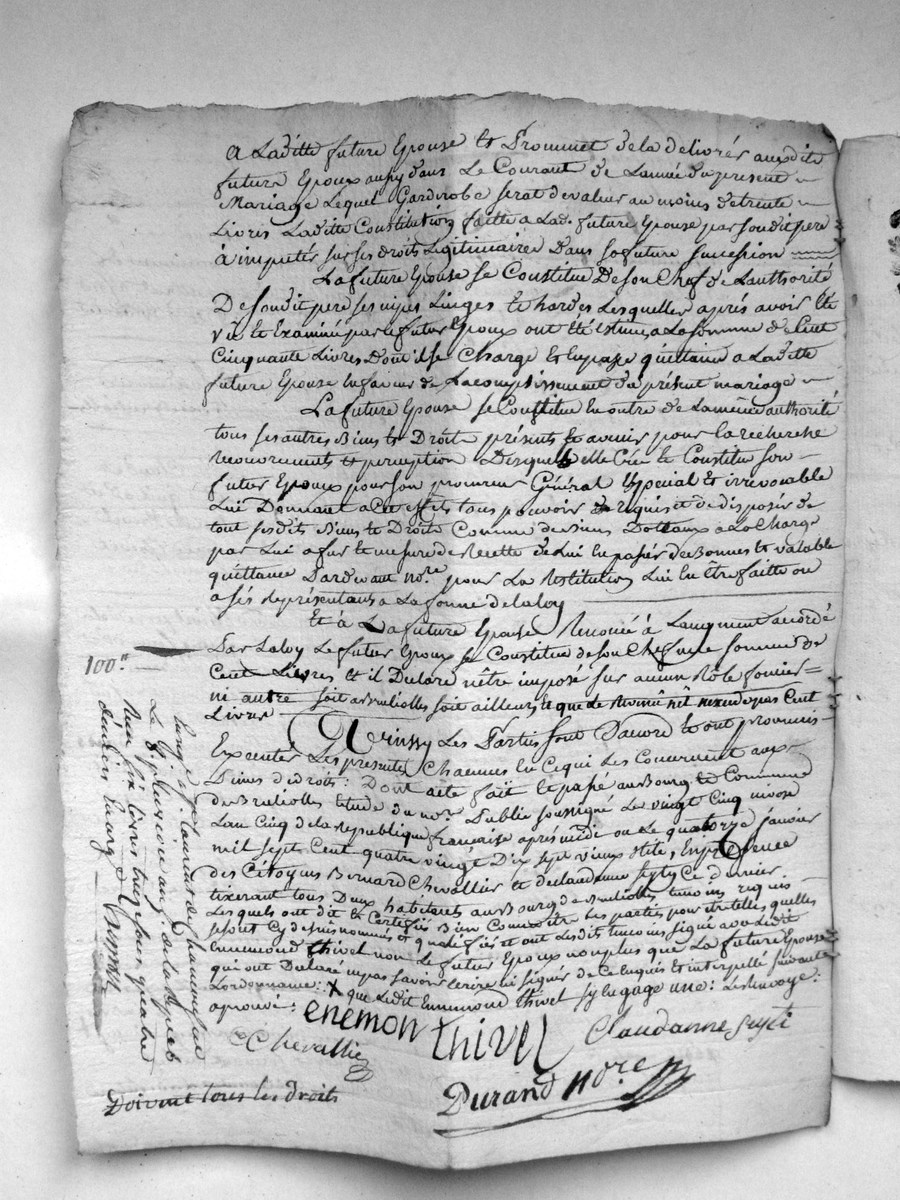 a Laditte future Epouse et Prommet de la délivrér audit
futur Epoux aujourd'huy dans Le Courant de L'année du présent
Mariage Lequel Gardirobe serat de valeur au moins de trente
Livres Laditte Constitution faitte a Ladi future Epouse par son dit pere
à imputér sur ses droits Legitimaires Dans sa future succession
La future Epouse se Constitue De son Chef de L'authorité
De son dit pere ses nipes Linges et hardes Lesquelles aprés avoir été
vu et Examiné par le futur Epoux ont été Estimés a La somme de Cent
Cinquante Livres Dont il se Charge et En passe quittance a Laditte
future Epouse En faveur de L'acomplissement du présent mariage
La future Epouse se Constitue En outre de La même authorité
tous ses autres Biens et Droits présents et avenir pour la recherche
recouvrements et perception Desquels elle Crée et Constitue son
futur Epoux pour son procureur Général Especial et irrévocable
Lui Donnant a Cet effet tous pouvoir requis et de disposér de
tout ses dits Biens et Droits Comme de siens Dottaux a La Charge
par Lui a fur et mesure de Recette de Lui En passér de Bonnes et valable
quittance Pardevant no.re pour La Restitution Lui En être faitte ou
a ses Représentans a La forme de la loy
Et à La future Epouse Renoncé à L'augment accordé
Par La loy Le futur Epoux se Constitue de son Chef une somme de
Cent Livres et il Déclare n'être imposé sur aucun Rôle foncier
ni autre soit a Brullioles soit ailleurs et que Le Revenu net n'excede pas Cent
Livres
Ainssy Les Parties sont D'acord et ont promis
Executér Les présentes Chacunes En Ce qui Les Concernent aux
Peines de droits: Dont acte fait et passé au Bourg et Commune
de Brullioles Etude du no.re Public soussigné Le vingt Cinq nivose
L'an Cinq de la République française aprés midi ou Le quatorze janvier
mil sept Cent quatre vingt Dix sept vieux stile; En présence
des Citoyens Bernard Chevallier et de Claud anne Seyti Ce dernier
tixerant tous Deux habitants au Bourg de Brullioles temoins requis
Lesquels ont dit et Certifiés Bien Connoitre Les parties pour être telles quelles
sont Cy dessus nommés et qualifiés et ont Lesdits temoins signé avec Ledit
Ennemond thivel non Le futur Epoux non plus que La future Epouse
qui ont Déclaré ne pas savoir écrire ni signér de Ce Enquis et interpellé suivant
L'ordonnance: X que Ledit Ennemond thivel sy Engage une: Led. renvoye:
aprouvé:
enemon thivel Claudanne seyti
Cchevallier
Durand no.re
100.tt
Doivent tous les droits